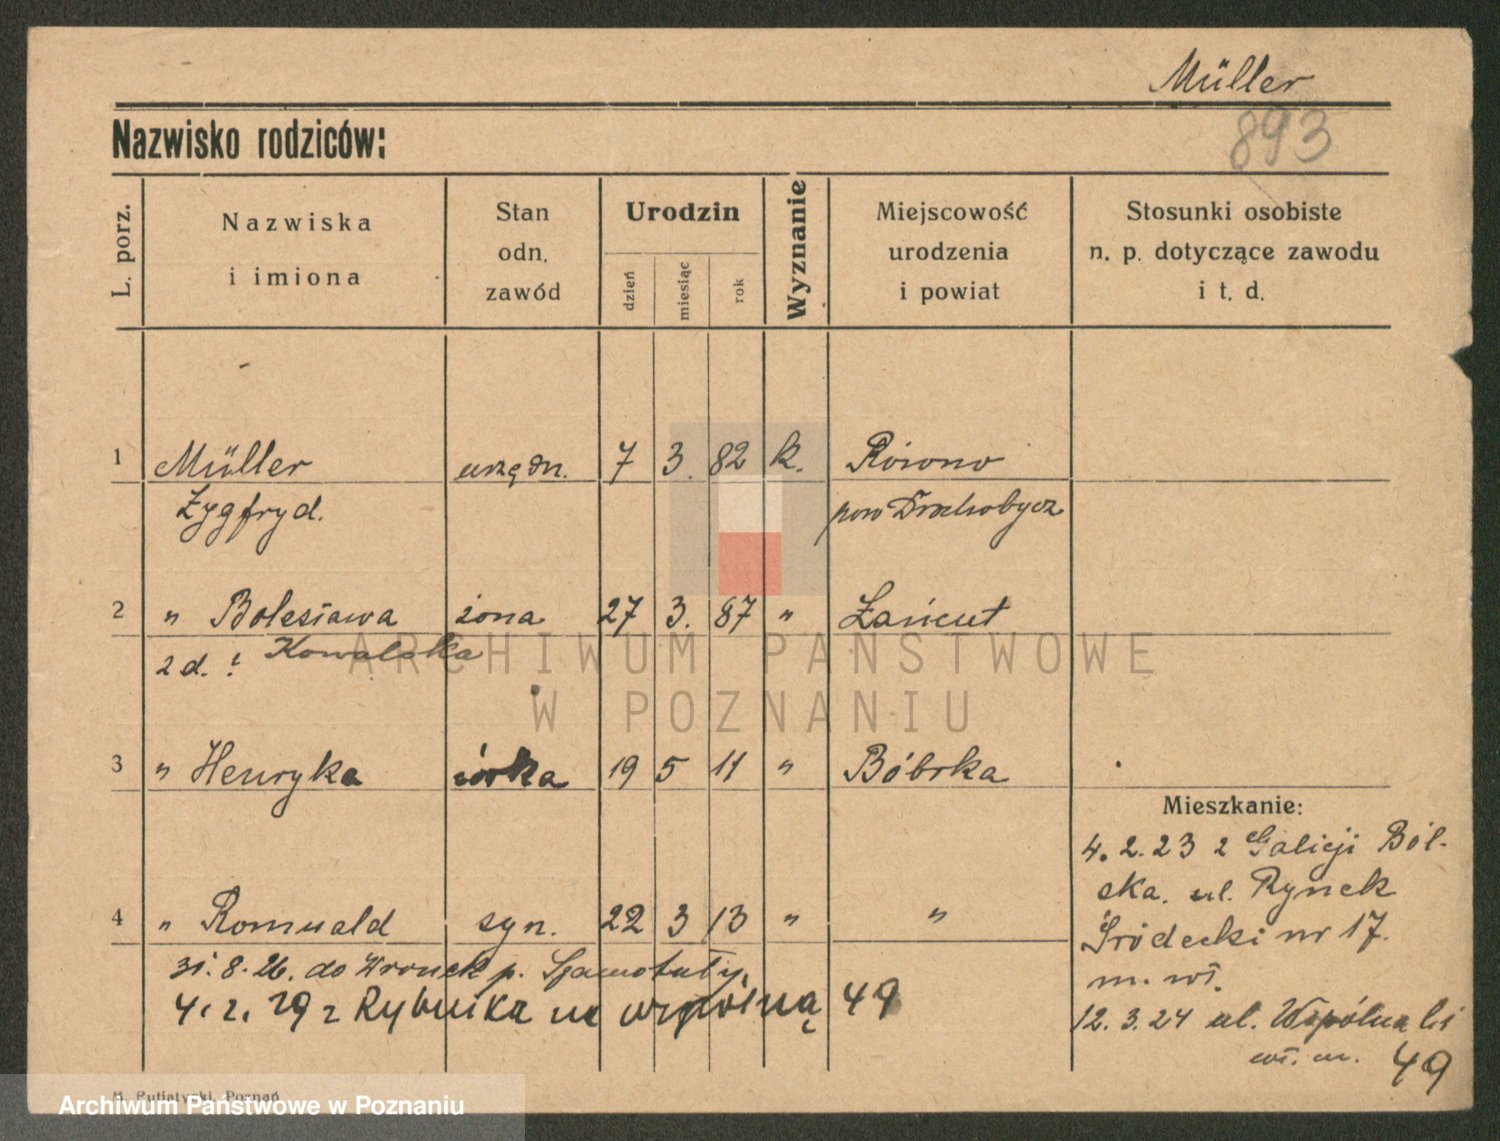 Müller
893
Nazwisko rodziców:
L. porz.
Nazwiska
i imiona
Stan
odn.
zawód
Urodzin
dzień
miesiąc
rok
Wyznanie
Miejscowość
urodzenia
i powiat
Stosunki osobiste
n. p. dotyczące zawodu
i t. d.
1 Müller urzędn. 7 3. 82 k. Równo
Zygfryd. pow Drohobycz
2 " Bolesława żona 27 3. 87 " Łańcut
2 d. : Kowalska
3 " Henryka córka 19 5 11 " Bóbrka
4 " Romuald syn. 22 3 13 " "
31. 8. 26. do Wronek p. Szamotuły.
4. 2. 29 z Rybnika na wspólną 49
Mieszkanie:
4. 2. 23 z Galicji Ból-
ska. ul. Rynek
Śródecki nr 17.
m. wł.
12. 3. 24 ul. Wspólna
wł. m. 49
ARCHIWUM PAŃSTWOWE
W POZNANIU
Putiatycki, Poznań
Archiwum Państwowe w Poznaniu